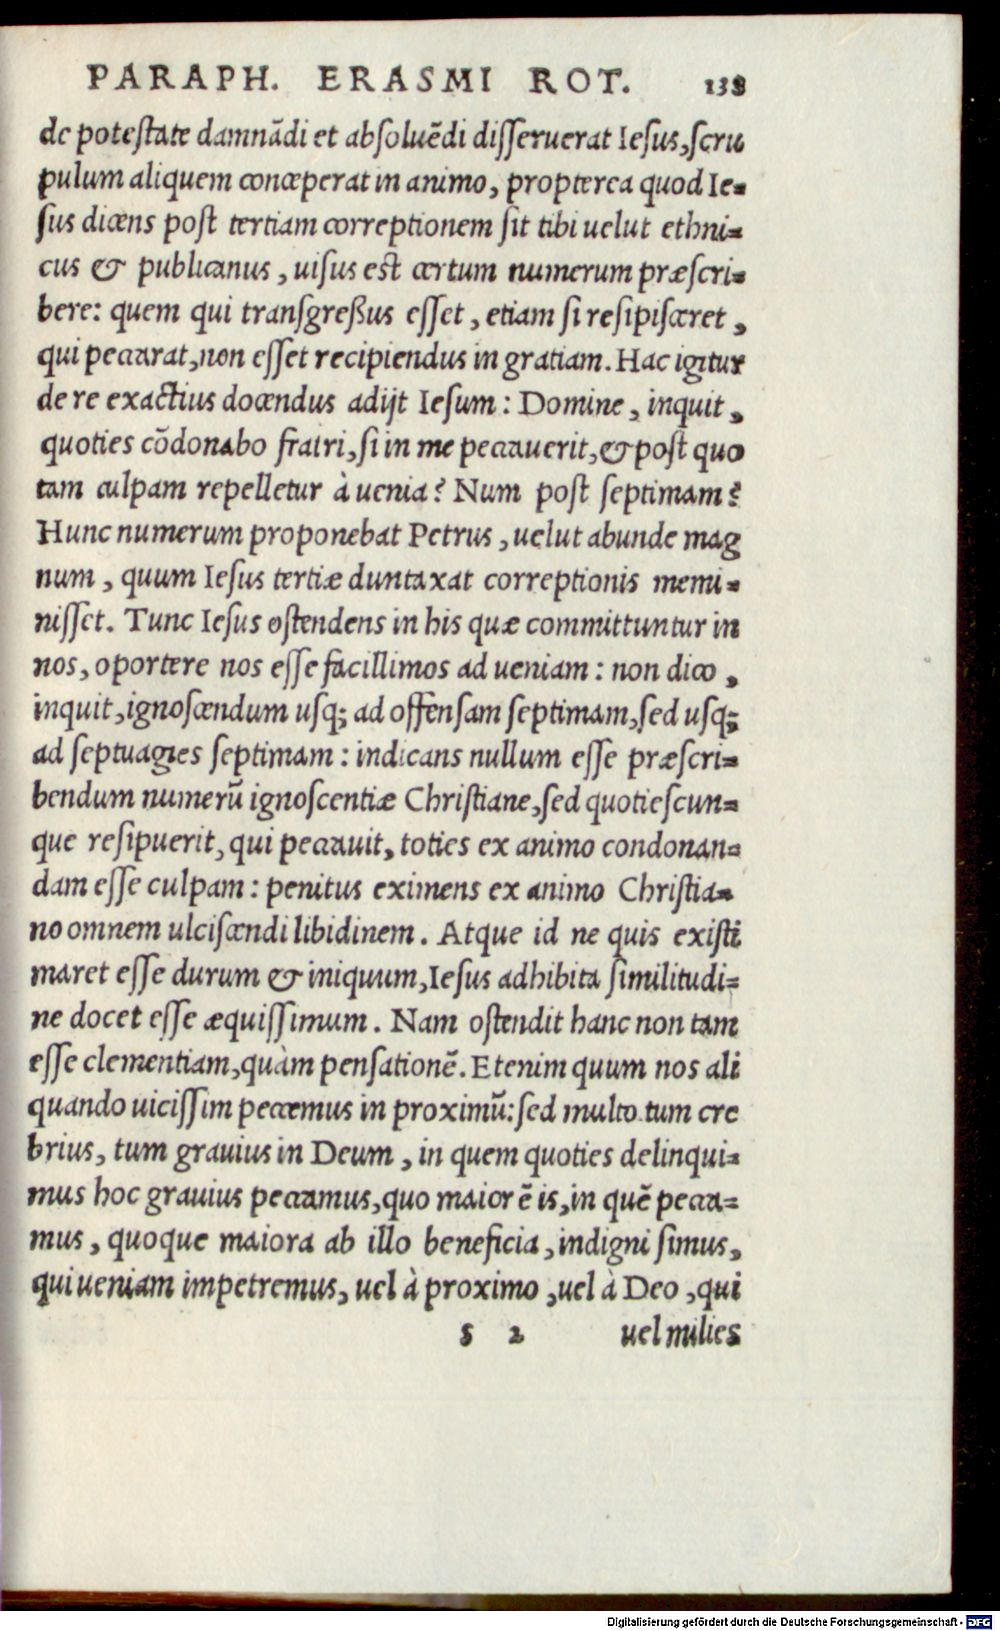 PARAPH. ERASMI ROT. 138
de poteſtate damnãdi et abſoluẽdi diſſeruerat Ieſus,ſcru
pulum aliquem conceperat in animo, propterea quod Ie=
ſus dicens poſt tertiam correptionem ſit tibi uelut ethni=
cus & publicanus, uiſus eſt certum numerum præſcri=
bere: quem qui tranſgreßus eſſet, etiam ſi reſipiſceret,
qui peccarat,non eſſet recipiendus in gratiam. Hac igitur
de re exactius docendus adijt Ieſum: Domine, inquit,
quoties cõdonabo fratri,ſi in me peccauerit,& poſt quo
tam culpam repelletur à uenia? Num poſt ſeptimam?
Hunc numerum proponebat Petrus, uelut abunde mag
num, quum Ieſus tertiæ duntaxat correptionis memi=
niſſet. Tunc Ieſus oſtendens in his quæ committuntur in
nos, oportere nos eſſe facillimos ad ueniam: non dico,
inquit,ignoſcendum uſq; ad offenſam ſeptimam,ſed uſq;
ad ſeptuagies ſeptimam: indicans nullum eſſe præſcri=
bendum numerũ ignoſcentiæ Chriſtiane,ſed quotieſcun=
que reſipuerit, qui peccauit, toties ex animo condonan=
dam eſſe culpam: penitus eximens ex animo Chriſtia=
no omnem ulciſcendi libidinem. Atque id ne quis exiſti
maret eſſe durum & iniquum,Ieſus adhibita ſimilitudi=
ne docet eſſe æquiſſimum. Nam oſtendit hanc non tam
eſſe clementiam,quàm penſationẽ. Etenim quum nos ali
quando uiciſſim peccemus in proximũ: ſed multo tum cre
brius, tum grauius in Deum, in quem quoties delinqui=
mus hoc grauius peccamus,quo maior ẽ is,in quẽ pecca=
mus, quoque maiora ab illo beneficia,indigni ſimus,
qui ueniam impetremus, uel à proximo,uel à Deo,qui
s 2 uel milies
Digitalisierung gefördert durch die Deutsche Forschungsgemeinschaft - DFG